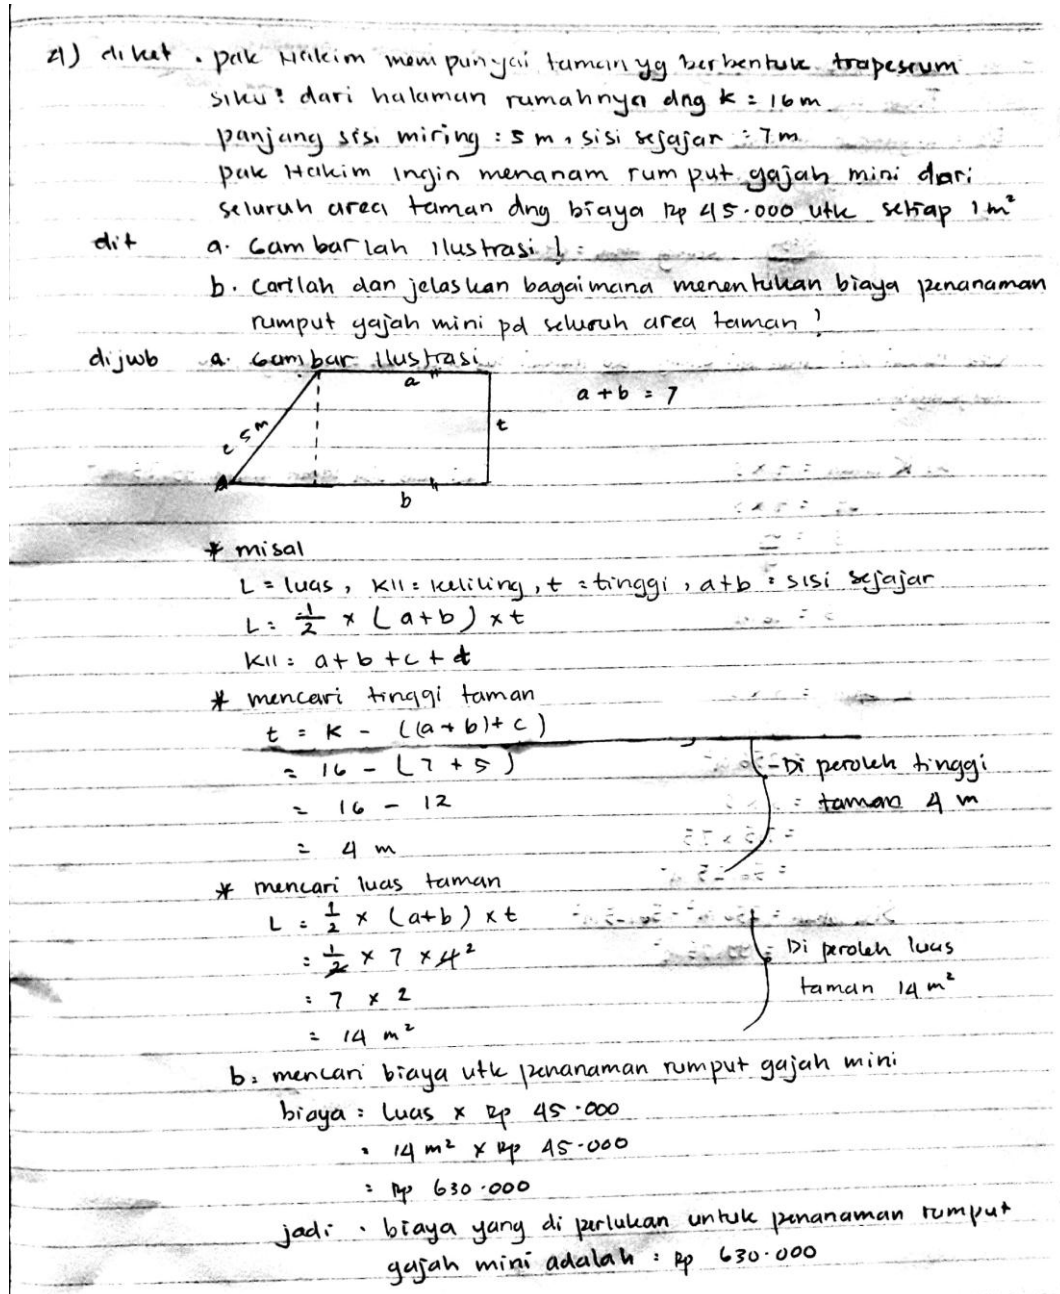 4) diket . pak Hakim mempunyai taman yg berbentuk trapesium
siku² dari halaman rumahnya dng k = 16 m
panjang sisi miring : 5 m, sisi sejajar = 7 m
pak Hakim ingin menanam rumput gajah mini dari
seluruh area taman dng biaya Rp 45.000 utk setiap 1 m²
dit a. Gambarlah ilustrasi !
b. Carilah dan jelaskan bagaimana menentukan biaya penanaman
rumput gajah mini pd seluruh area taman ?
dijwb a. Gambar ilustrasi
a
a + b = 7
c 5 m
t
b
* misal
L = luas, Kll = keliling, t = tinggi, a+b = sisi sejajar
L = 1/2 × (a+b) × t
Kll = a + b + c + t
* mencari tinggi taman
t = K - ((a + b) + c)
= 16 - (7 + 5)
= 16 - 12
= 4 m
- Di peroleh tinggi
taman 4 m
* mencari luas taman
L = 1/2 × (a+b) × t
= 1/2 × 7 × 4 2
= 7 × 2
= 14 m²
Di peroleh luas
taman 14 m²
b. mencari biaya utk penanaman rumput gajah mini
biaya = Luas × Rp 45.000
= 14 m² × Rp 45.000
= Rp 630.000
jadi . biaya yang di perlukan untuk penanaman rumput
gajah mini adalah = Rp 630.000